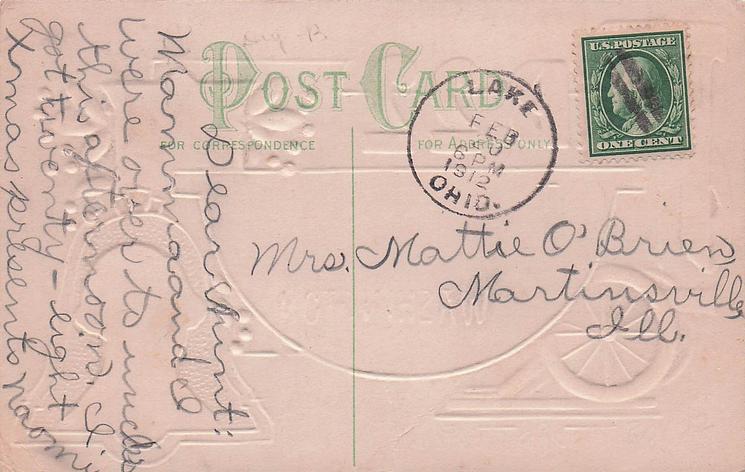 POST CARD
FOR CORRESPONDENCE
FOR ADDRESS ONLY
U.S. POSTAGE
ONE CENT
LAKE
FEB
6 PM
1912
OHIO.
Mrs. Mattie O'Brien
Martinsville
Ill.
Dear Aunt:
Mamma and I
were over to uncles
this afternoon. I
got twenty-eight
Xmas presents Naomi